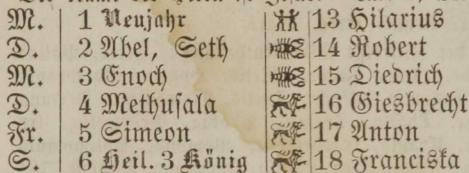 M. 1 Neujahr 13 Hilarius
D. 2 Abel, Seth 14 Robert
M. 3 Enoch 15 Diedrich
D. 4 Methusala 16 Giesbrecht
Fr. 5 Simeon 17 Anton
S. 6 Heil. 3 König 18 Franciska